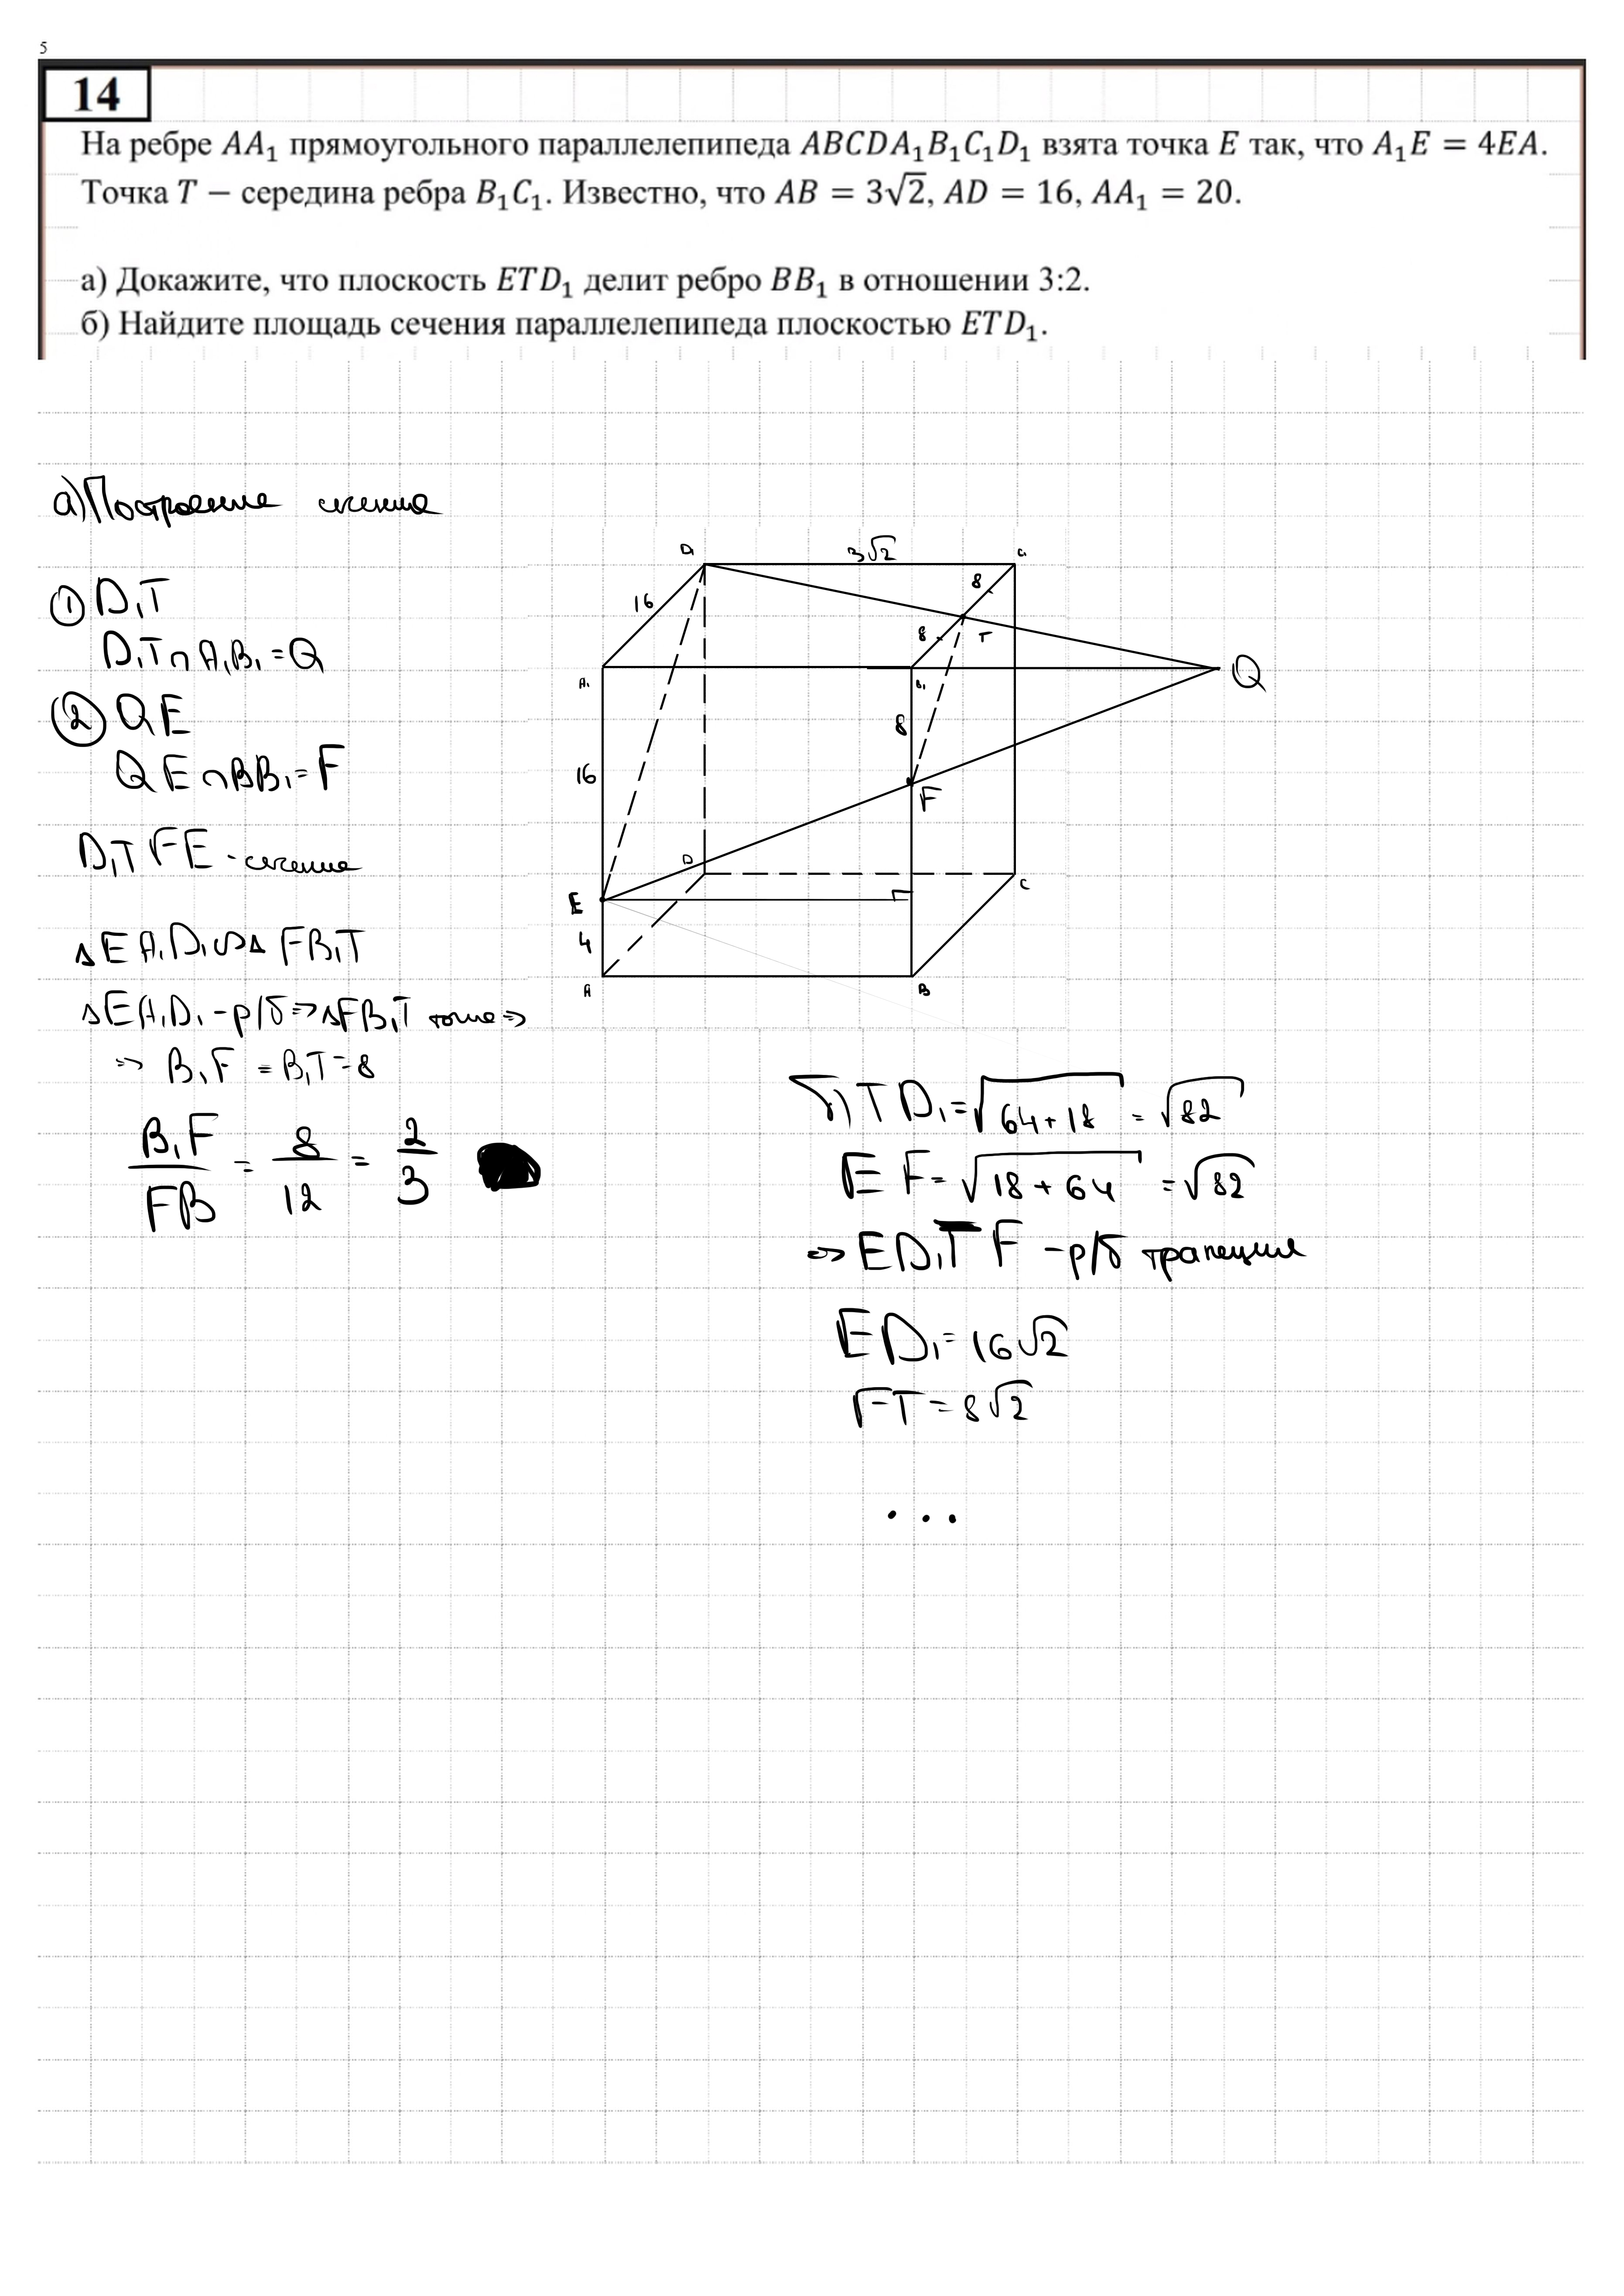 5
14
На ребре AA₁ прямоугольного параллелепипеда ABCDA₁B₁C₁D₁ взята точка E так, что A₁E = 4EA.
Точка T − середина ребра B₁C₁. Известно, что AB = 3√2, AD = 16, AA₁ = 20.
а) Докажите, что плоскость ETD₁ делит ребро BB₁ в отношении 3:2.
б) Найдите площадь сечения параллелепипеда плоскостью ETD₁.
а) Построение сечения
① D₁T
D₁T ∩ A₁B₁ = Q
② QE
QE ∩ BB₁ = F
D₁TFE - сечение
△EA₁D₁ ∽ △FB₁T
△EA₁D₁ - р/б ⇒ △FB₁T тоже ⇒
⇒ B₁F = B₁T = 8
B₁F/FB = 8/12 = 2/3
D₁
3√2
C₁
16
8
8
T
A₁
B₁
Q
8
16
F
D
C
E
4
A
B
б) TD₁ = √(64+18) = √82
EF = √(18+64) = √82
⇒ ED₁TF - р/б трапеция
ED₁ = 16√2
FT = 8√2
...